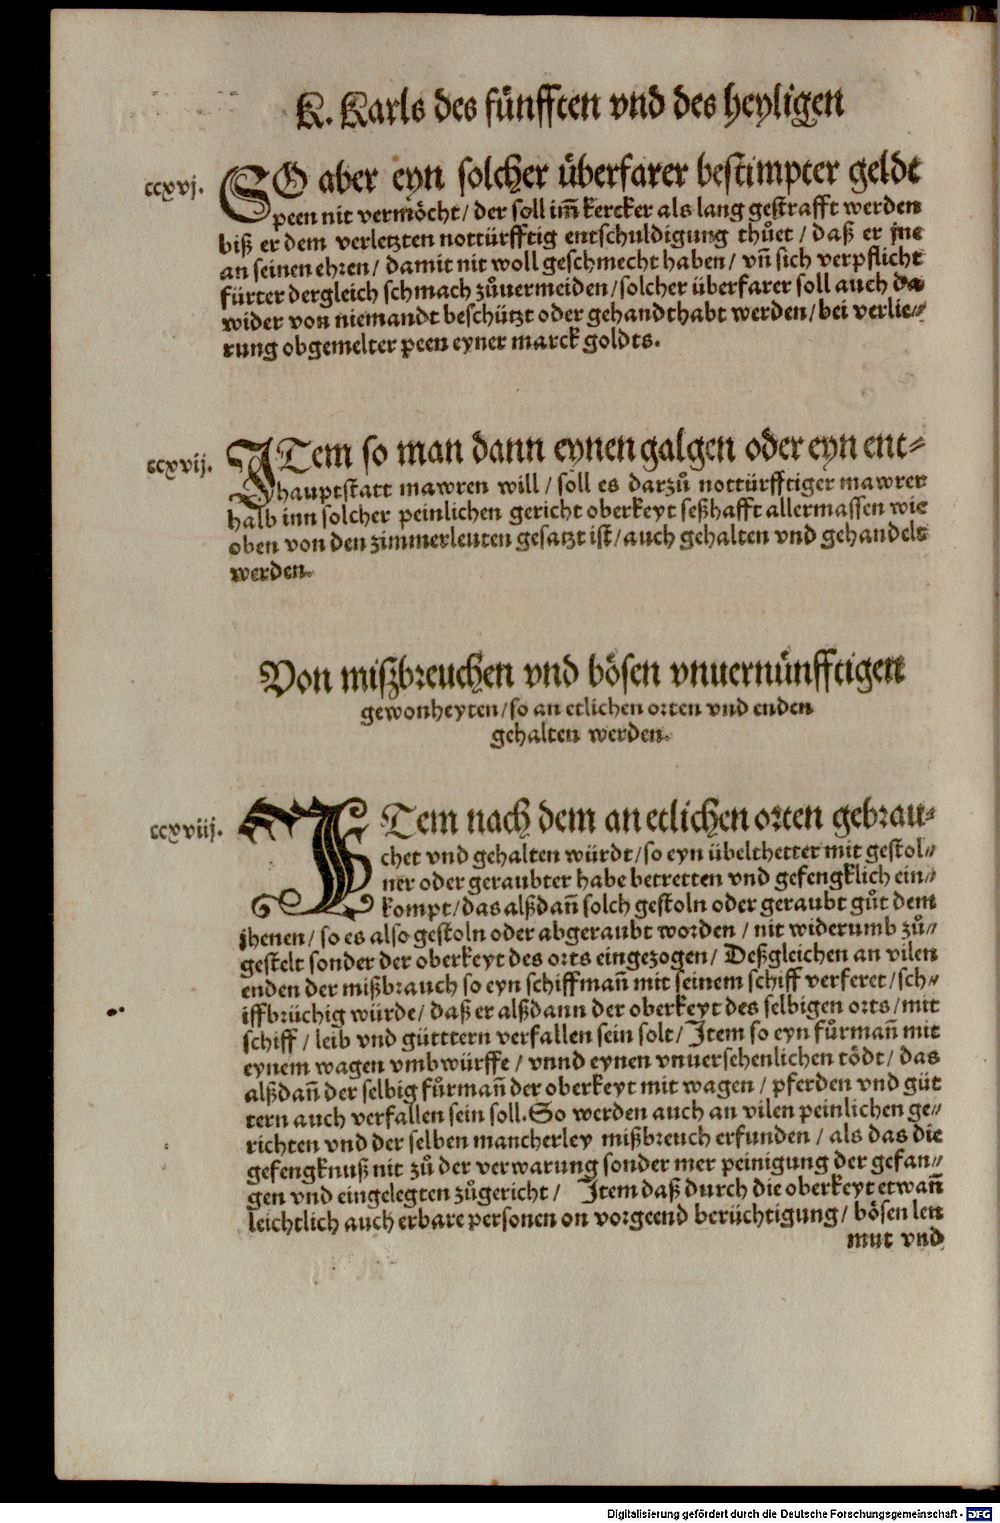 K. Karls des fünfften vnd des heyligen
ccxvj. SO aber eyn solcher überfarer bestimpter geldt
peen nit vermöcht / der soll im̃ kercker als lang gestrafft werden
biß er dem verletzten nottürfftig entschuldigung thůet / daß er jne
an seinen ehren / damit nit woll geschmecht haben / vñ sich verpflicht
fürter dergleich schmach zůuermeiden / solcher überfarer soll auch da
wider von niemandt beschützt oder gehandthabt werden / bei verlie⸗
rung obgemelter peen eyner marck goldts.
ccxvij. ITem so man dann eynen galgen oder eyn ent⸗
hauptstatt mawren will / soll es darzů nottürfftiger mawrer
halb inn solcher peinlichen gericht oberkeyt seßhafft allermassen wie
oben von den zimmerleuten gesatzt ist / auch gehalten vnd gehandelt
werden.
Von miszbreuchen vnd bösen vnuernünfftigen
gewonheyten / so an etlichen orten vnd enden
gehalten werden.
ccxviij. ITem nach dem an etlichen orten gebrau⸗
chet vnd gehalten würdt / so eyn übelthetter mit gestol⸗
ner oder geraubter habe betretten vnd gefengklich ein⸗
kompt / das alßdañ solch gestoln oder geraubt gůt dem
jhenen / so es also gestoln oder abgeraubt worden / nit widerumb zů⸗
gestelt sonder der oberkeyt des orts eingezogen / Deßgleichen an vilen
enden der mißbrauch so eyn schiffmañ mit seinem schiff verferet / sch⸗
iffbrüchig würde / daß er alßdann der oberkeyt des selbigen orts / mit
schiff / leib vnd gütttern verfallen sein solt / Item so eyn fůrmañ mit
eynem wagen vmbwürffe / vnnd eynen vnuersehenlichen tödt / das
alßdañ der selbig fůrmañ der oberkeyt mit wagen / pferden vnd güt
tern auch verfallen sein soll. So werden auch an vilen peinlichen ge⸗
richten vnd der selben mancherley mißbreuch erfunden / als das die
gefengknuß nit zů der verwarung sonder mer peinigung der gefan⸗
gen vnd eingelegten zůgericht / Item daß durch die oberkeyt etwañ
leichtlich auch erbare personen on vorgeend berüchtigung / bösen leu
mut vnd
Digitalisierung gefördert durch die Deutsche Forschungsgemeinschaft - DFG